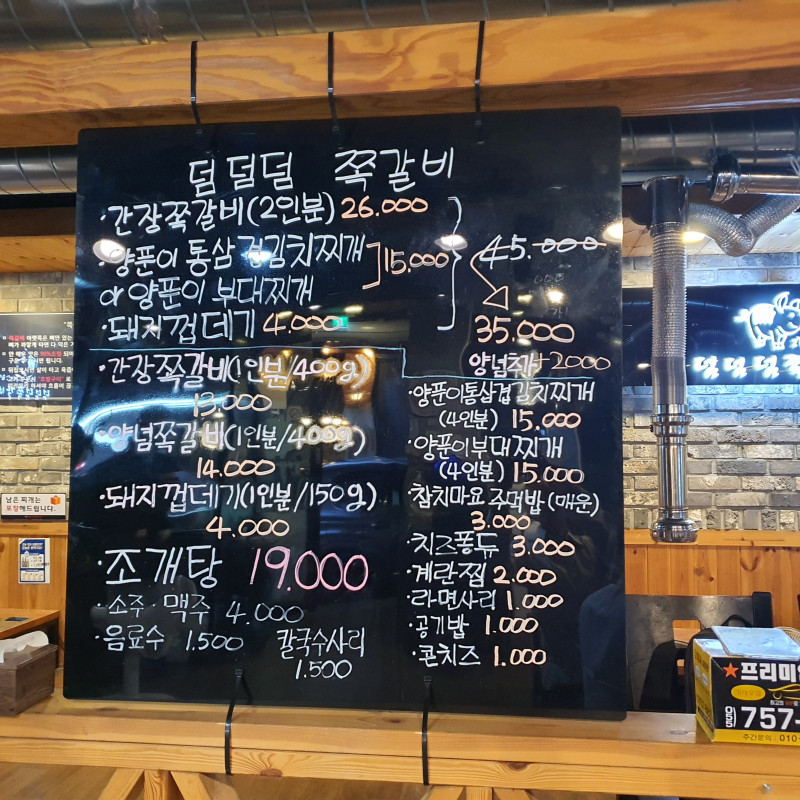 덤덤덜 쪽갈비
·간장쪽갈비(2인분) 26.000
·양푼이 통삼겹김치찌개
or 양푼이 부대찌개
15.000
·돼지껍데기 4.000
45.000
35.000
양념추가+2000
·간장쪽갈비(1인분/400g)
13.000
·양념쪽갈비(1인분/400g)
14.000
·돼지껍데기(1인분/150g)
4.000
·조개탕 19.000
·소주·맥주 4.000
·음료수 1.500
칼국수사리
1.500
·양푼이통삼겹김치찌개
(4인분) 15.000
·양푼이부대찌개
(4인분) 15.000
·참치마요 주먹밥(매운)
3.000
·치즈퐁듀 3.000
·계란찜 2.000
·라면사리 1.000
·공기밥 1.000
·콘치즈 1.000
남은 찌개는
포장해드립니다.
덤덤덤
프리미
055)757-
주간문의: 010-